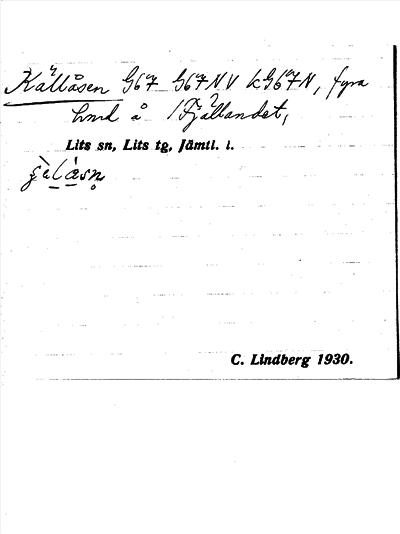 Källåsen G67 G67NV kG67N, fyra
å Fjällandet,
Lits sn, Lits tg, Jämtl. l.
C. Lindberg 1930.